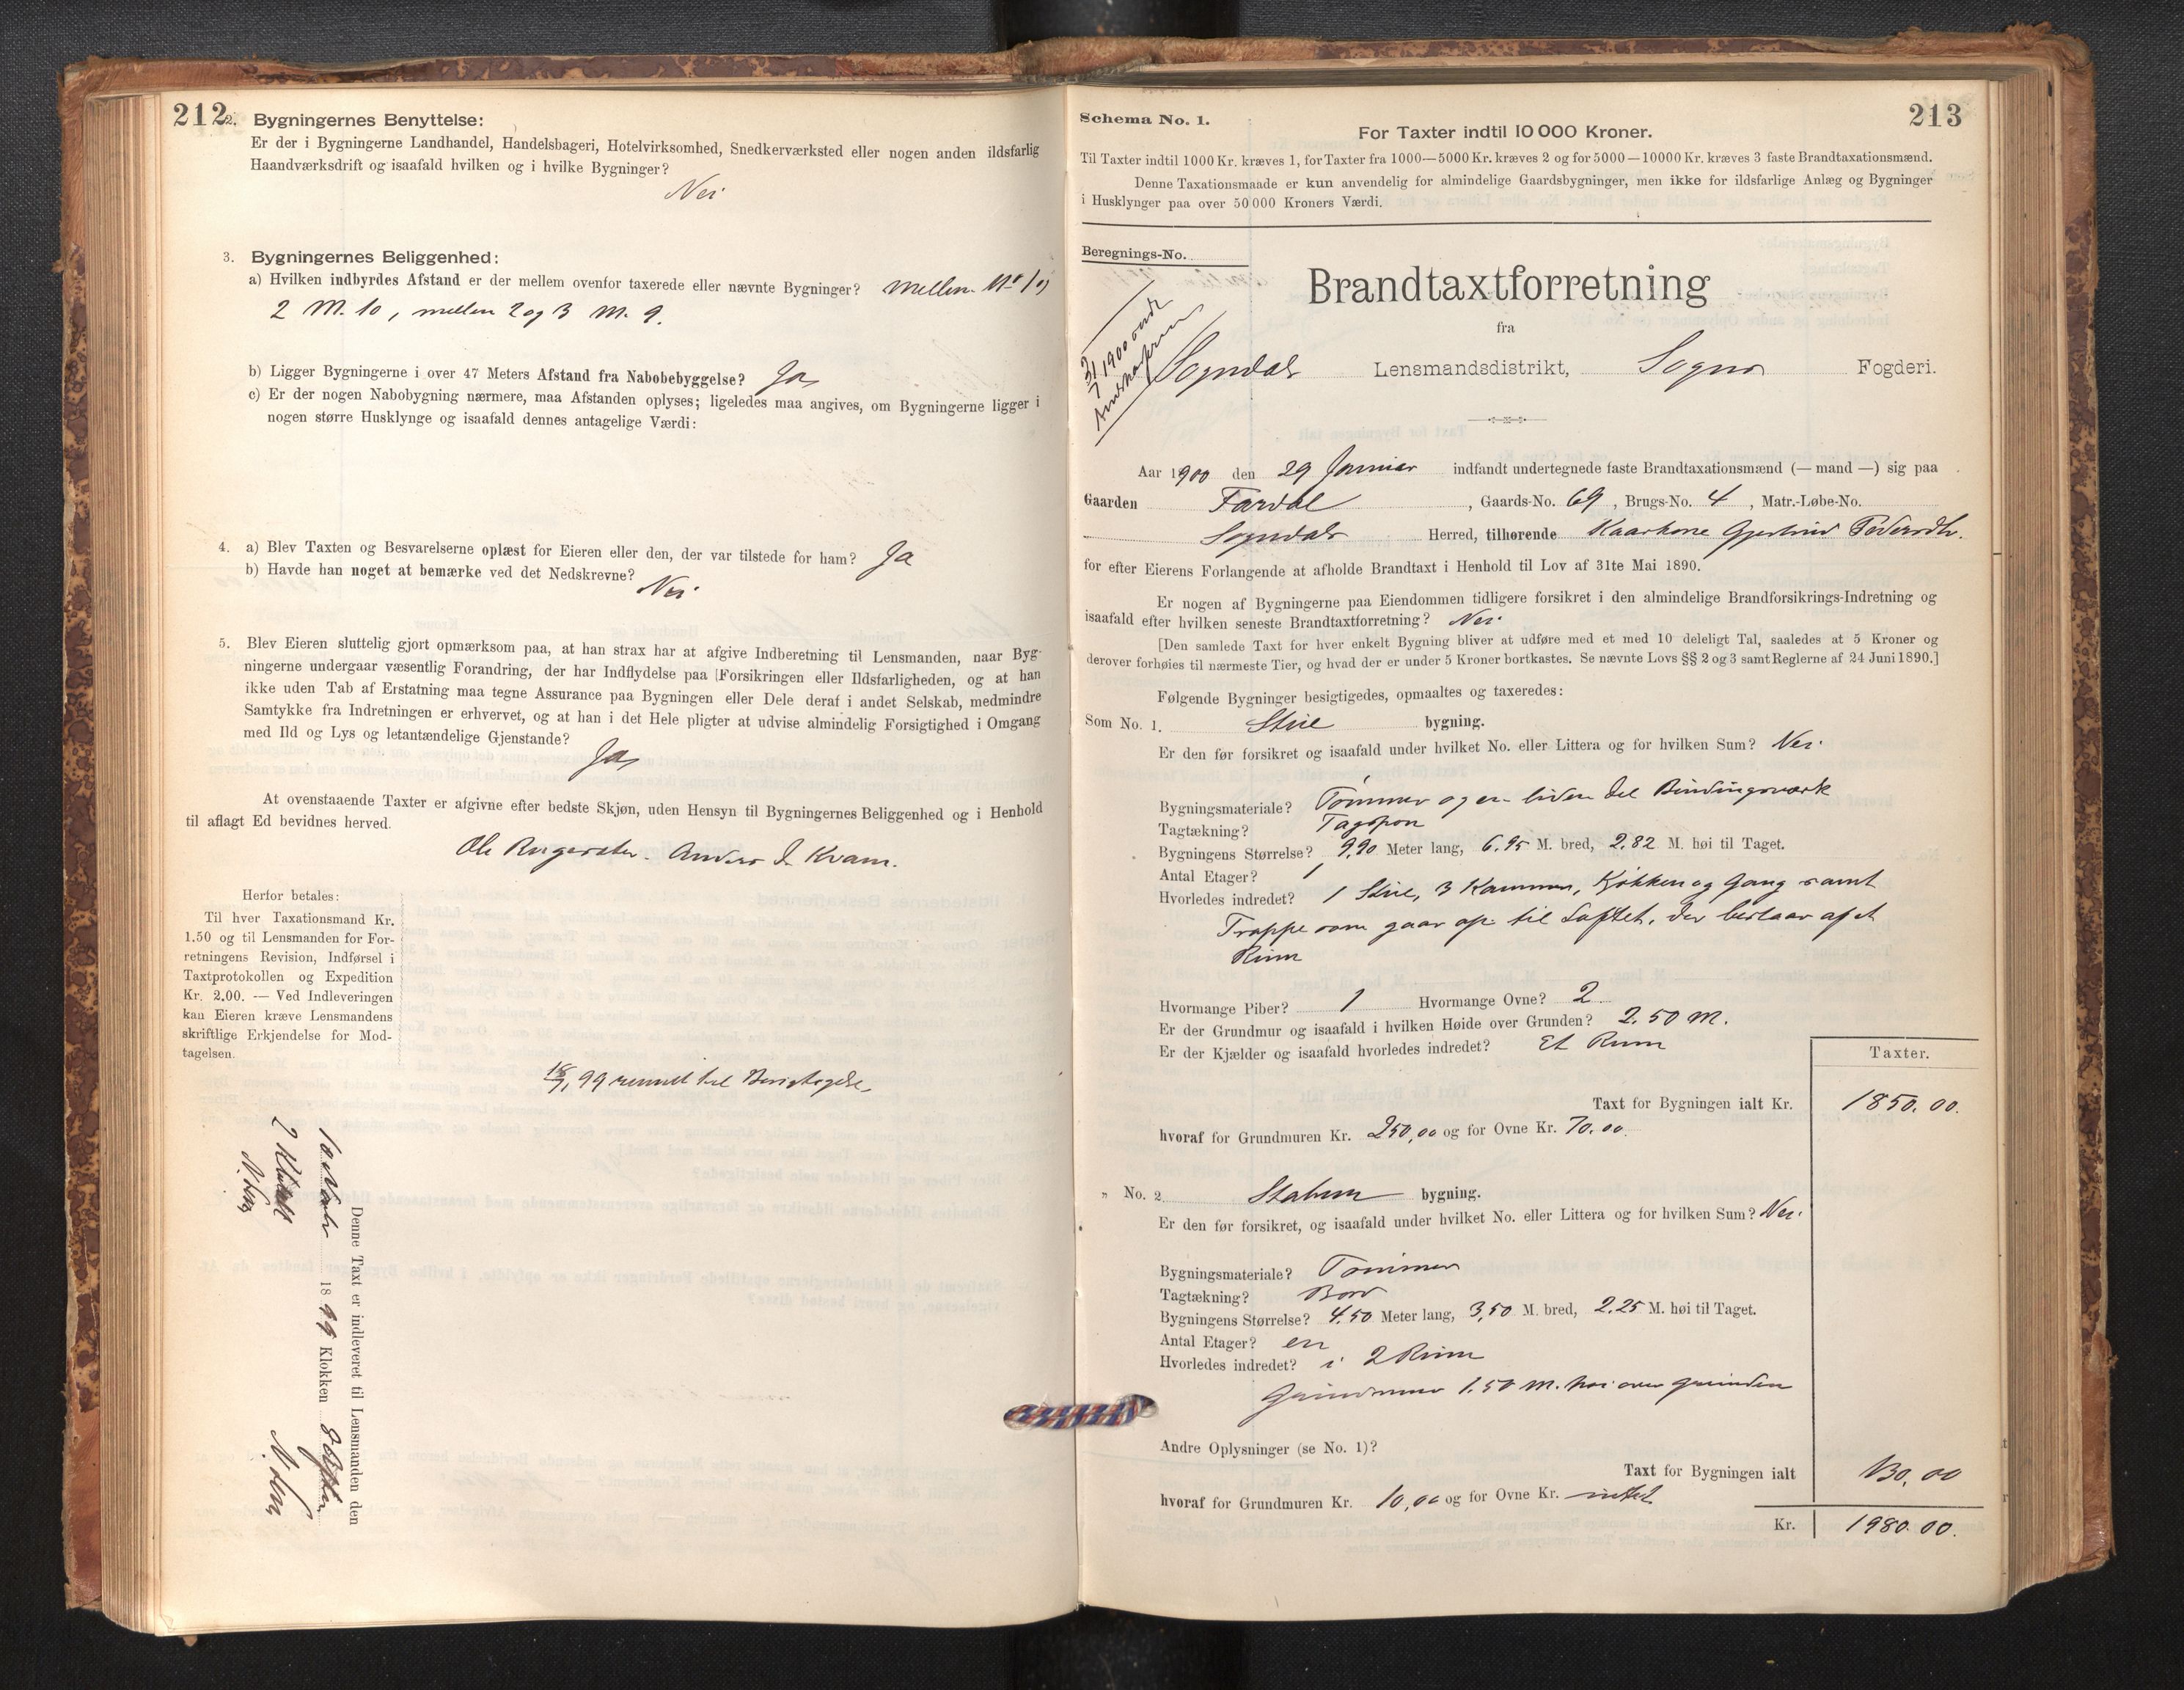 212
2. Bygningernes Benyttelse:
Er der i Bygningerne Landhandel, Handelsbageri, Hotelvirksomhed, Snedkerværksted eller nogen anden ildsfarlig
Haandværksdrift og isaafald hvilken og i hvilke Bygninger?
Nei
3. Bygningernes Beliggenhed:
a) Hvilken indbyrdes Afstand er der mellem ovenfor taxerede eller nævnte Bygninger? mellem No 1 og
2 M. 10, mellem 2 og 3 M. 9.
b) Ligger Bygningerne i over 47 Meters Afstand fra Nabobebyggelse? Ja
c) Er der nogen Nabobygning nærmere, maa Afstanden oplyses; ligeledes maa angives, om Bygningerne ligger i
nogen større Husklynge og isaafald dennes antagelige Værdi:
4. a) Blev Taxten og Besvarelserne oplæst for Eieren eller den, der var tilstede for ham? Ja
b) Havde han noget at bemærke ved det Nedskrevne?
Nei
5. Blev Eieren sluttelig gjort opmærksom paa, at han strax har at afgive Indberetning til Lensmanden, naar Byg-
ningerne undergaar væsentlig Forandring, der har Indflydelse paa Forsikringen eller Ildsfarligheden, og at han
ikke uden Tab af Erstatning maa tegne Assurance paa Bygningen eller Dele deraf i andet Selskab, medmindre
Samtykke fra Indretningen er erhvervet, og at han i det Hele pligter at udvise almindelig Forsigtighed i Omgang
med Ild og Lys og letantændelige Gjenstande?
Ja
At ovenstaaende Taxter er afgivne efter bedste Skjøn, uden Hensyn til Bygningernes Beliggenhed og i Henhold
til aflagt Ed bevidnes herved.
Ole Anders J. Kvam.
Herfor betales:
Til hver Taxationsmand Kr.
1.50 og til Lensmanden for For-
retningens Revision, Indførsel i
Taxtprotokollen og Expedition
Kr. 2.00. — Ved Indleveringen
kan Eieren kræve Lensmandens
skriftlige Erkjendelse for Mod-
tagelsen.
99 til
Denne Taxt er indleveret til Lensmanden den
10 1899 Klokken 8
Schema No. 1.
213
For Taxter indtil 10 000 Kroner.
Til Taxter indtil 1000 Kr. kræves 1, for Taxter fra 1000—5000 Kr. kræves 2 og for 5000—10000 Kr. kræves 3 faste Brandtaxationsmænd.
Denne Taxationsmaade er kun anvendelig for almindelige Gaardsbygninger, men ikke for ildsfarlige Anlæg og Bygninger
i Husklynger paa over 50 000 Kroners Værdi.
Beregnings-No.
Brandtaxtforretning
fra
Sogndals Lensmandsdistrikt, Sogns Fogderi.
Aar 1900 den 29 Januar indfandt undertegnede faste Brandtaxationsmænd (— mand —) sig paa
Gaarden Fardal, Gaards-No. 69, Brugs-No. 4, Matr.-Løbe-No.
Sogndals Herred, tilhørende Kaarkone Gjertrud Pedersdtr.
for efter Eierens Forlangende at afholde Brandtaxt i Henhold til Lov af 31te Mai 1890.
Er nogen af Bygningerne paa Eiendommen tidligere forsikret i den almindelige Brandforsikrings-Indretning og
isaafald efter hvilken seneste Brandtaxtforretning? Nei.
[Den samlede Taxt for hver enkelt Bygning bliver at udføre med et med 10 deleligt Tal, saaledes at 5 Kroner og
derover forhøies til nærmeste Tier, og hvad der er under 5 Kroner bortkastes. Se nævnte Lovs §§ 2 og 3 samt Reglerne af 24 Juni 1890.]
Følgende Bygninger besigtigedes, opmaaltes og taxeredes:
Som No. 1. Stue bygning.
Er den før forsikret og isaafald under hvilket No. eller Littera og for hvilken Sum? Nei.
Bygningsmateriale? Tømmer og en liden del Bindingsværk
Tagtækning? Tagspon
Bygningens Størrelse? 9,90 Meter lang, 6.95 M. bred, 2.82 M. høi til Taget.
Antal Etager? 1
Hvorledes indredet? 1 Stue, 3 Kammer, Kjøkken og Gang samt
Trappe som gaar op til Loftet, der bestaar af et
Rum
Hvormange Piber? 1 Hvormange Ovne? 2
Er der Grundmur og isaafald i hvilken Høide over Grunden? 2.50 M.
Er der Kjælder og isaafald hvorledes indredet? Et Rum
Taxter.
Taxt for Bygningen ialt Kr. 1850.00.
hvoraf for Grundmuren Kr. 250,00 og for Ovne Kr. 70.00.
" No. 2 Stabur bygning.
Er den før forsikret, og isaafald under hvilket No. eller Littera og for hvilken Sum? Nei.
Bygningsmateriale? Tømmer
Tagtækning? Bord
Bygningens Størrelse? 4.50 Meter lang, 3,50 M. bred, 2.25 M. høi til Taget.
Antal Etager? en
Hvorledes indredet? i 2 Rum
Grundmur 1.50 M. høi over grunden
Andre Oplysninger (se No. 1)?
Taxt for Bygningen ialt 130,00
hvoraf for Grundmuren Kr. 10,00 og for Ovne Kr. intet
Kr. 1980.00.